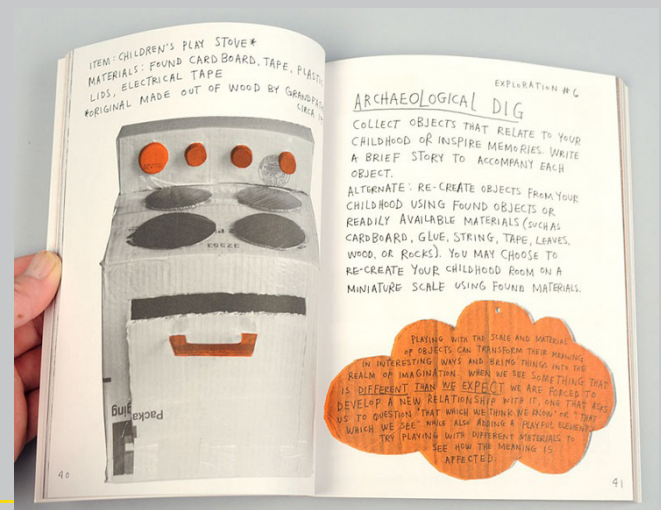 ITEM: CHILDREN'S PLAY STOVE*
MATERIALS: FOUND CARDBOARD, TAPE, PLASTIC
LIDS, ELECTRICAL TAPE
*ORIGINAL MADE OUT OF WOOD BY
CIRCA
33523
Packa
ging
40
EXPLORATION #6
ARCHAEOLOGICAL DIG
COLLECT OBJECTS THAT RELATE TO YOUR
CHILDHOOD OR INSPIRE MEMORIES. WRITE
A BRIEF STORY TO ACCOMPANY EACH
OBJECT.
ALTERNATE: RE-CREATE OBJECTS FROM YOUR
CHILDHOOD USING FOUND OBJECTS OR
READILY AVAILABLE MATERIALS (SUCH AS
CARDBOARD, GLUE, STRING, TAPE, LEAVES,
WOOD, OR ROCKS). YOU MAY CHOOSE TO
RE-CREATE YOUR CHILDHOOD ROOM ON A
MINIATURE SCALE USING FOUND MATERIALS.
PLAYING WITH THE SCALE AND MATERIAL
OF OBJECTS CAN TRANSFORM THEIR MEANING
IN INTERESTING WAYS AND BRING THINGS INTO THE
REALM OF IMAGINATION. WHEN WE SEE SOMETHING THAT
IS DIFFERENT THAN WE EXPECT WE ARE FORCED TO
DEVELOP A NEW RELATIONSHIP WITH IT, ONE THAT ASKS
US TO QUESTION "THAT WHICH WE THINK WE KNOW" OR "THAT
WHICH WE SEE" WHILE ALSO ADDING A PLAYFUL ELEMENT.
TRY PLAYING WITH DIFFERENT MATERIALS TO
SEE HOW THE MEANING IS
AFFECTED.
41